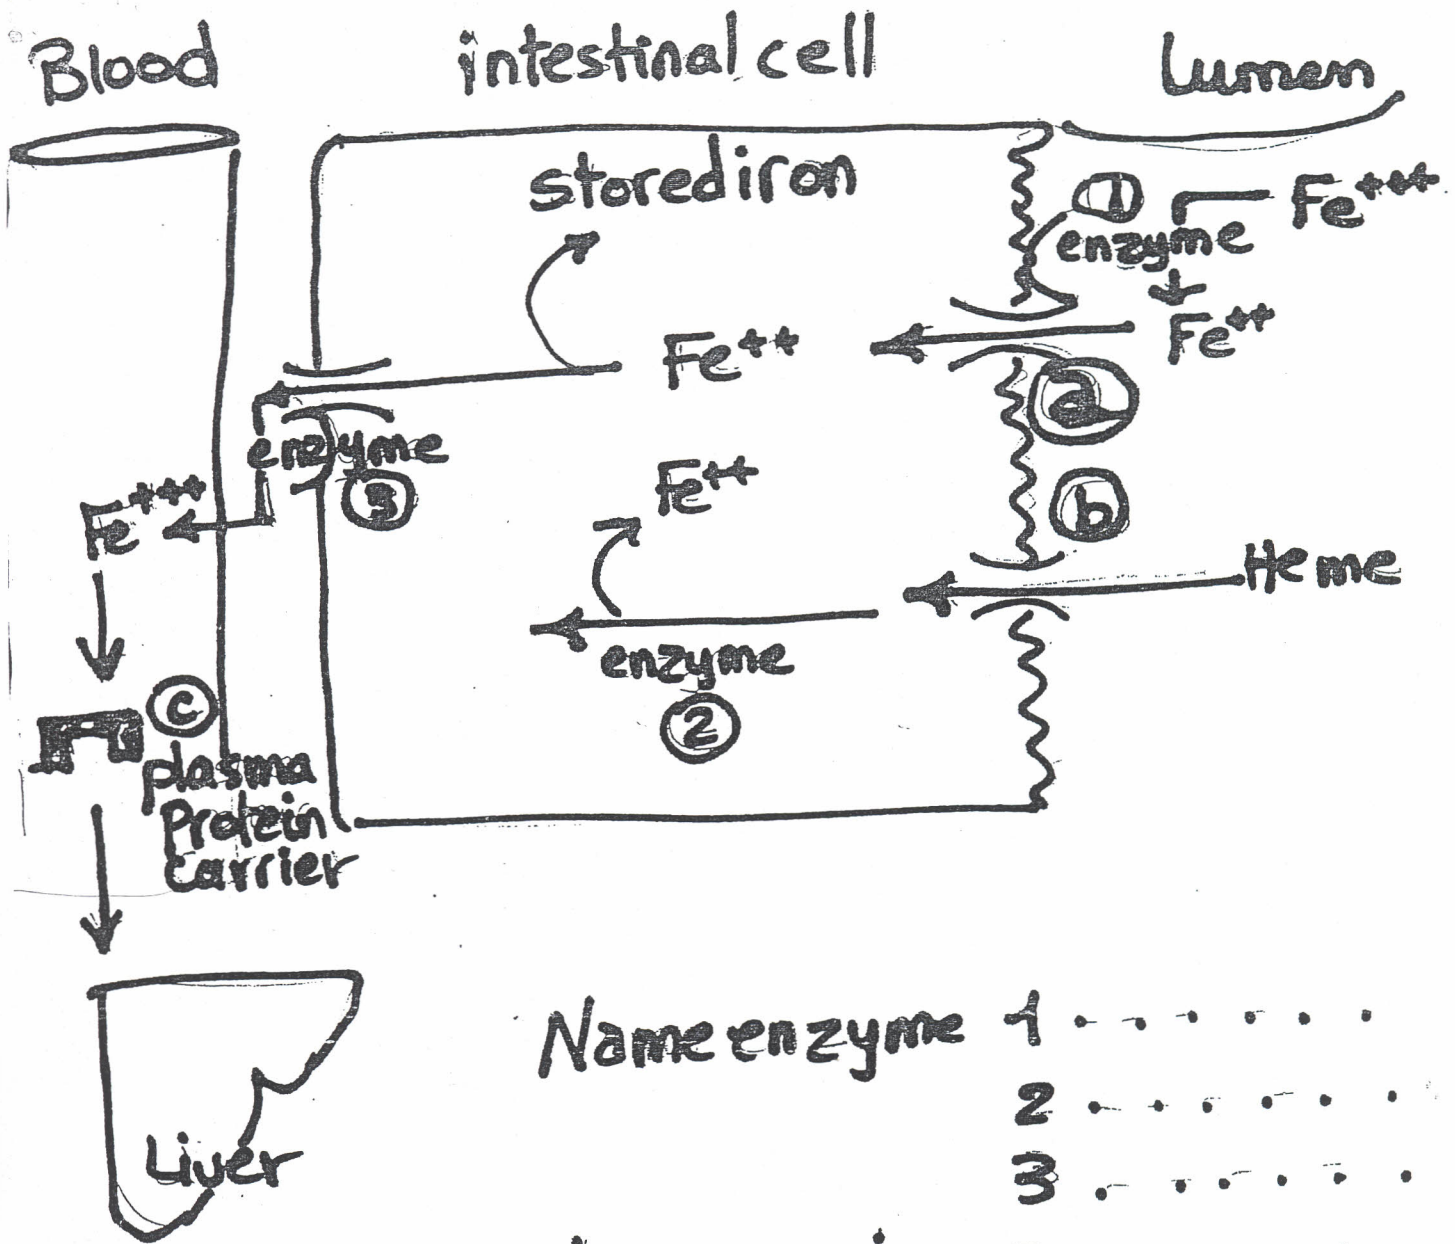 Blood
intestinal cell
Lumen
stored iron
1
enzyme
Fe+++
Fe++
Fe++
a
enzyme
3
Fe+++
Fe++
b
Heme
enzyme
2
c
plasma
Protein
carrier
Liver
Name enzyme 1 . . . . . .
2 . . . . . .
3 . . . . . .